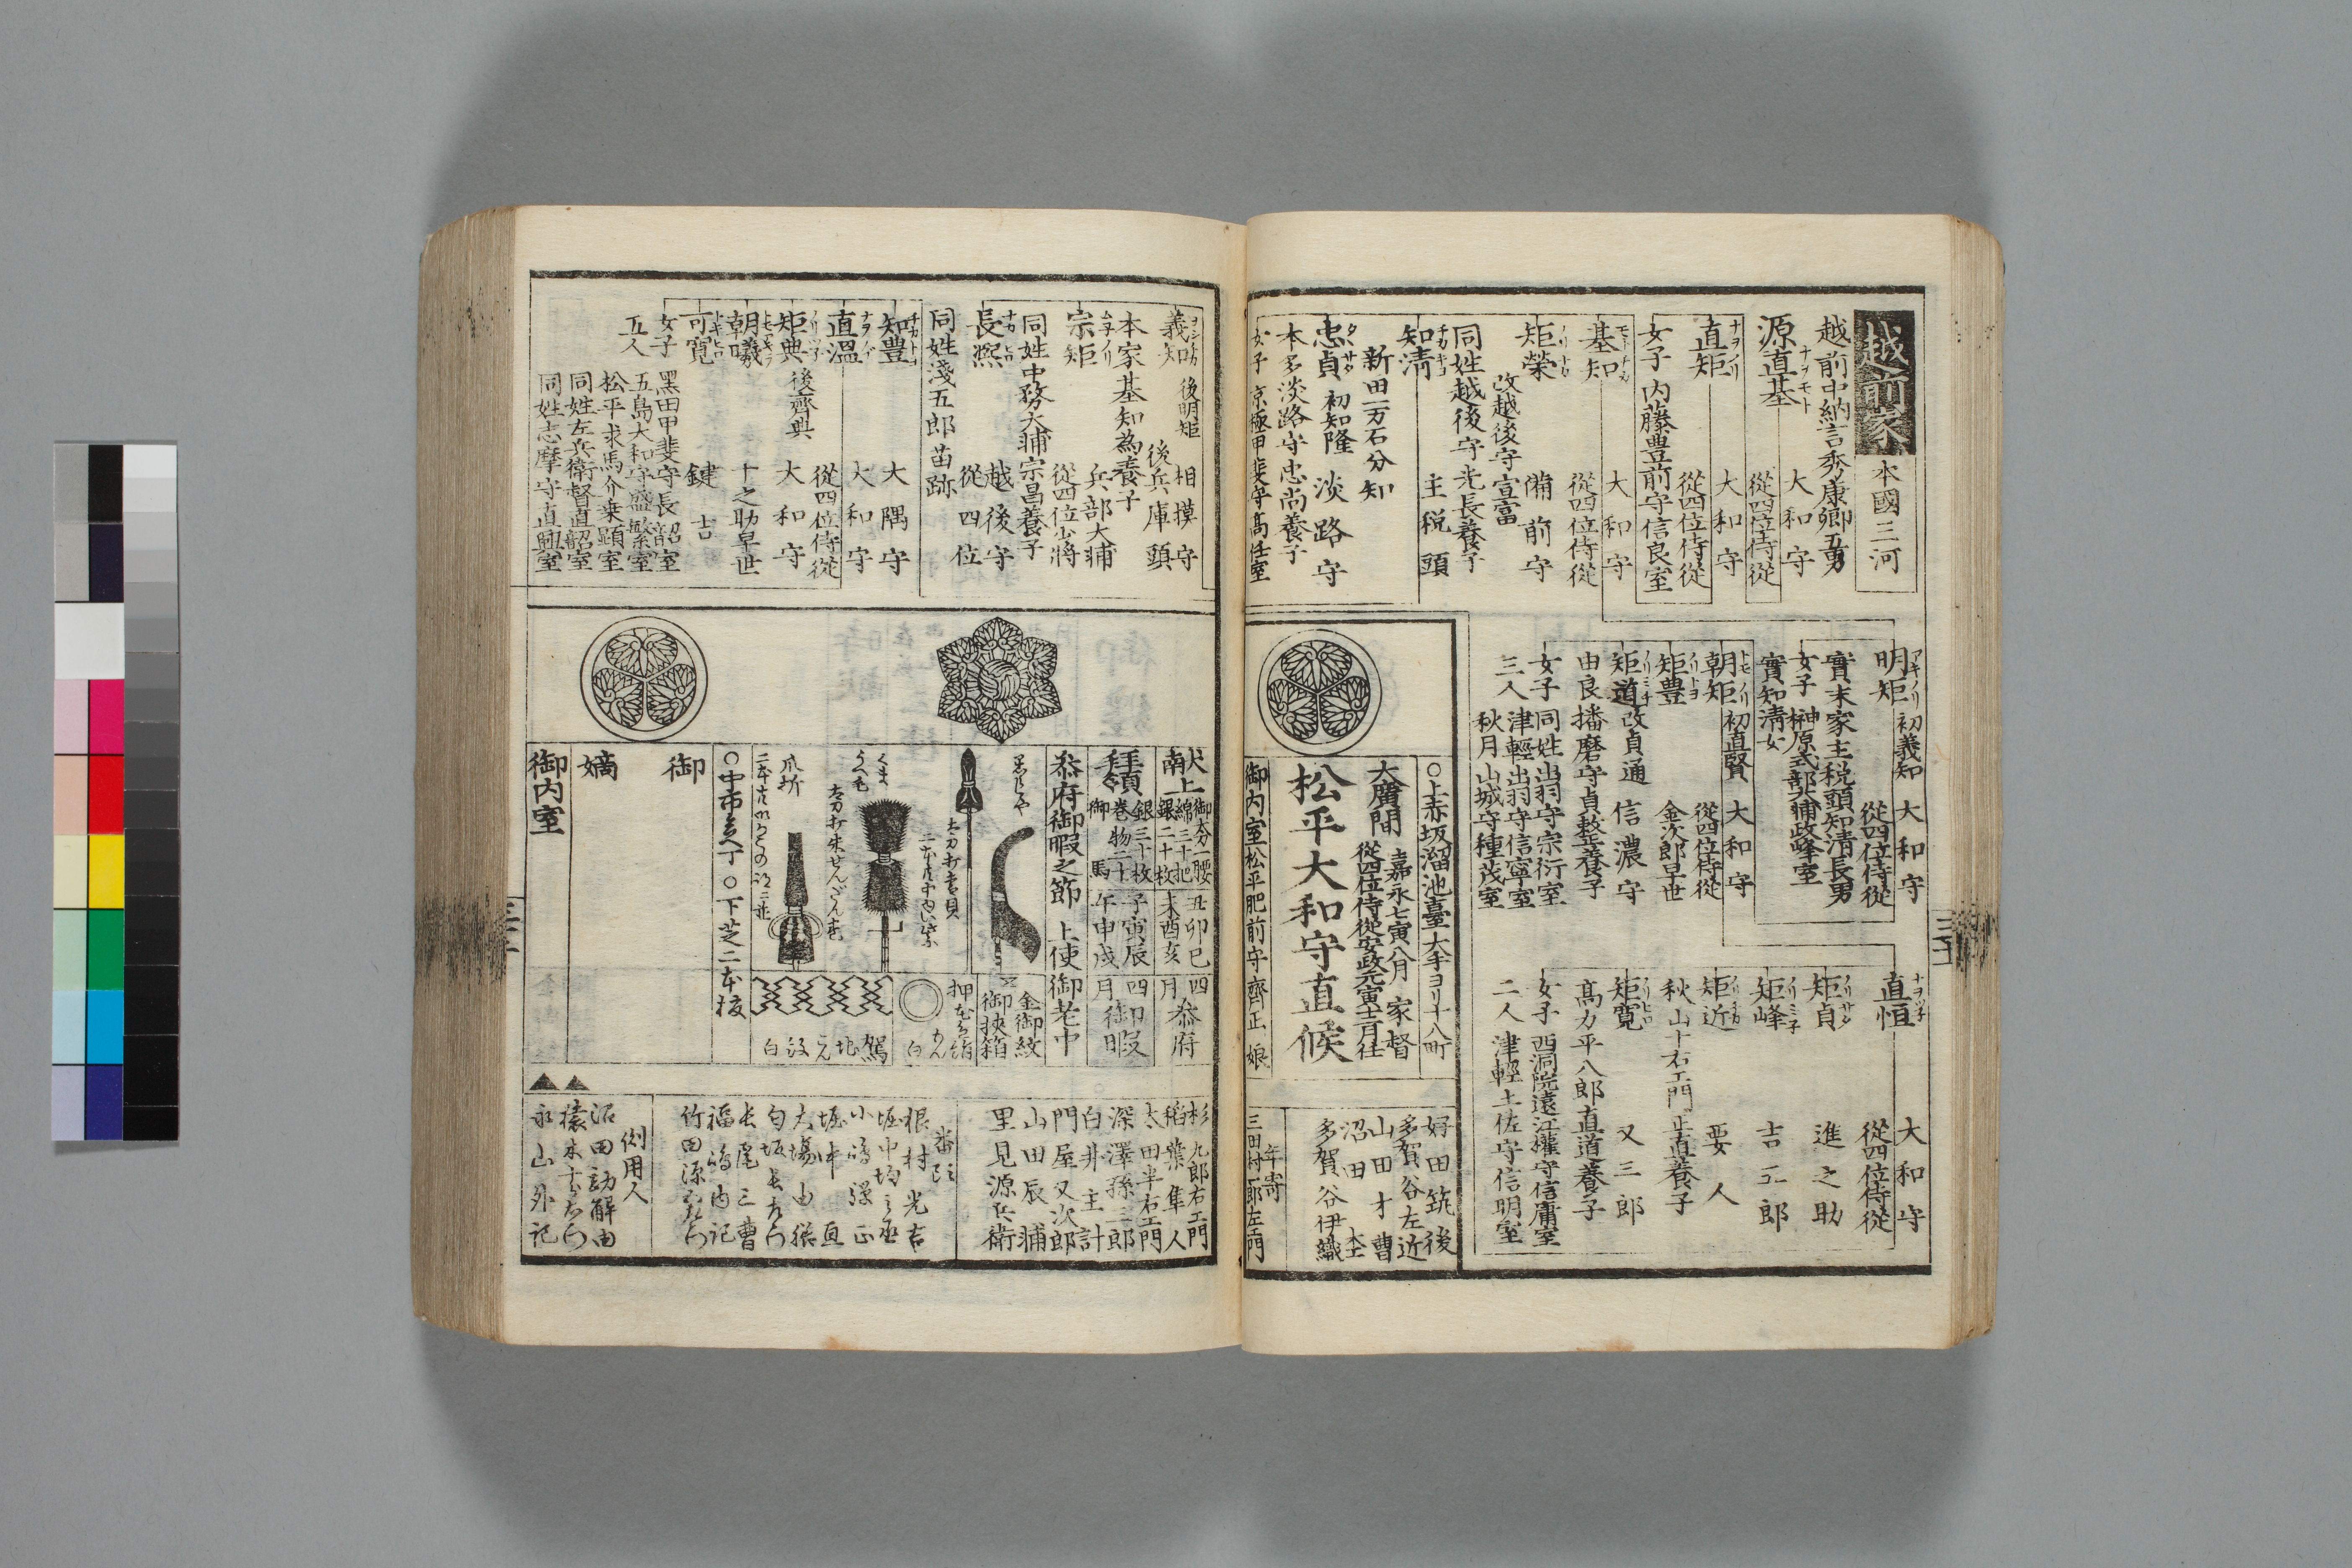 越前家
本國三河
越前中納言秀康卿五男
源直基
ナヲモト
大和守
從四位侍從
直矩
ナヲノリ
大和守
從四位侍從
女子 内藤豊前守信良室
基知
モトチカ
大和守
從四位侍從
矩榮
備前守
改越後守宣富
同姓越後守光長養子
知清
チカキヨ
主税頭
新田一万石分知
忠貞
タヽサダ
初知隆 淡路守
本多淡路守忠尚養子
女子 京極甲斐守高住室
明矩
アキノリ
初義知
大和守
從四位侍從
實末家主税頭知清長男
女子 榊原式部大輔政峰室
實知清女
朝矩
トモノリ
初直賢
大和守
從四位侍從
矩豊
ノリトヨ
金次郎早世
矩道
ノリミチ
改貞通
信濃守
由良播磨守貞整養子
女子 同姓出羽守宗衍室
三人 津輕出羽守信寧室
秋月山城守種茂室
直恒
ナヲツ子
大和守
從四位侍從
矩貞
ノリサダ
進之助
矩峰
ノリミ子
吉五郎
矩近
ノリチカ
要人
秋山十右エ門正直養子
矩寛
ノリヒロ
又三郎
高力平八郎直道養子
女子 西洞院遠江權守信庸室
二人 津輕土佐守信明室
○上赤坂溜池臺 大手ヨリ十八町
大廣間
嘉永七寅八月 家督
從四位侍從安政元寅十二月任
松平大和守直候
御内室 松平肥前守齊正娘
好田筑後
多賀谷左近
山田才曹
沼田杢
多賀谷伊織
年寄
三田村一郎左エ門
三十
義知
ヨシチカ
後明矩
相摸守
後兵庫頭
本家基知為養子
宗矩
ムネノリ
兵部大輔
從四位少將
同姓中務大輔宗昌養子
長熈
ナガヒロ
越後守
從四位
同姓淺五郎苗跡
知豊
チカトヨ
大隅守
直温
ナヲノブ
大和守
從四位侍從
矩典
ノリツ子
後齊典
大和守
朝曦
十之助早世
可寛
鍵吉
女子 黑田甲斐守長韶室
五人 五島大和守盛繁室
松平求馬介乗顕室
同姓左兵衛督直韶室
同姓志摩守直興室
献上
御太刀一腰
綿三十把
銀二十枚
丑卯巳
未酉亥
四月
参府
拜領
銀三十枚
巻物二十
御馬
子寅辰
午申戌
四月
御暇
参府御暇之節 上使御老中
金御紋
御挾箱
太刀打青貝
くま
うくも
爪折
押
白
駕
地
白
○下芝二本榎
御嫡
御内室
杉九郎右エ門
稻葉隼人
太田半右エ門
深澤孫三郎
白井主計
門屋又次郎
山田辰輔
里見源兵衛
番頭
根村光吉
小嶋彈正
長尾三曹
福嶋内記
側用人
沼田勘解由
永山外記